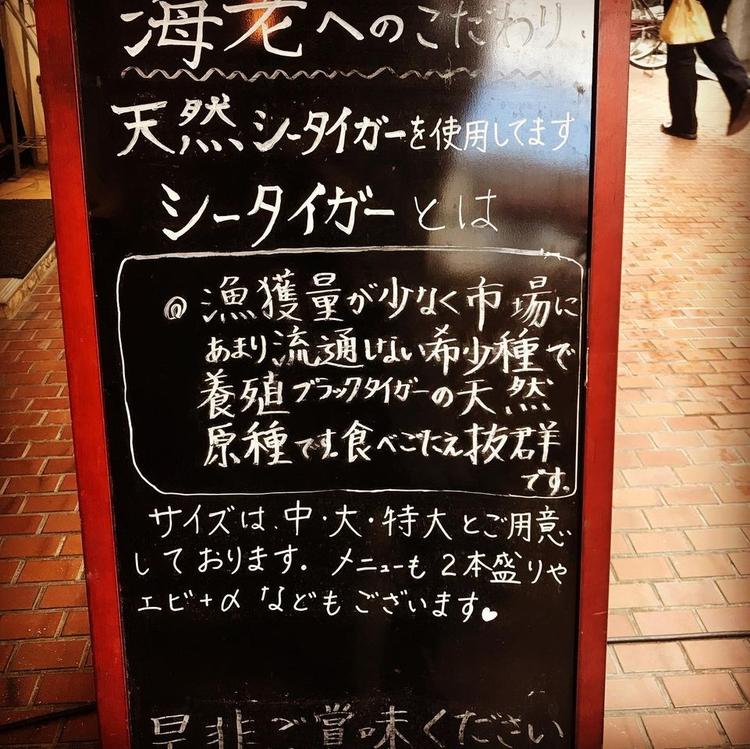 海老へのこだわり
天然シータイガーを使用してます
シータイガーとは
◎漁獲量が少なく市場に
あまり流通しない希少種で
養殖ブラックタイガーの天然
原種です。食べごたえ抜群
です。
サイズは、中・大・特大とご用意
しております。メニューも2本盛りや
エビ+αなどもございます。♥
是非ご賞味ください